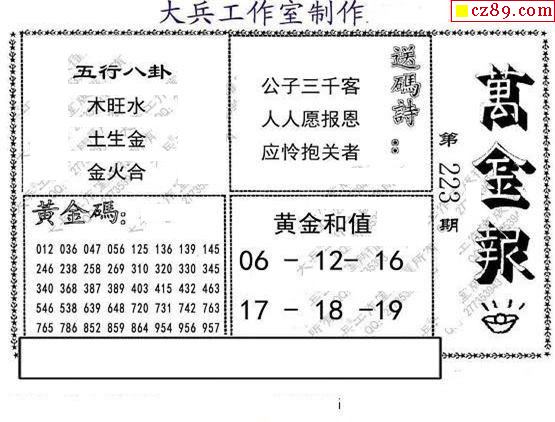 大兵工作室制作
cz89.com
五行八卦
木旺水
土生金
金火合
送碼詩：
公子三千客
人人愿报恩
应怜抱关者
萬金報
第223期
黃金碼：
012 036 047 056 125 136 139 145
246 238 258 269 310 320 330 345
340 368 387 389 403 415 432 463
546 538 639 648 720 731 742 763
765 786 852 859 864 954 956 957
黄金和值
06 - 12- 16
17 - 18 -19
i